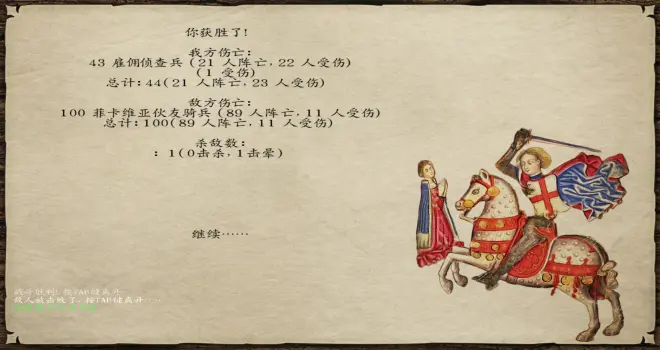 你获胜了!
我方伤亡:
43 雇佣侦查兵 (21 人阵亡,22 人受伤)
(1 受伤)
总计:44(21 人阵亡,23 人受伤)
敌方伤亡:
100 菲卡维亚伙友骑兵 (89 人阵亡,11 人受伤)
总计:100(89 人阵亡,11 人受伤)
杀敌数:
: 1(0击杀,1击晕)
继续……
战斗胜利!按TAB键离开…
敌人被击败了,按TAB键离开…